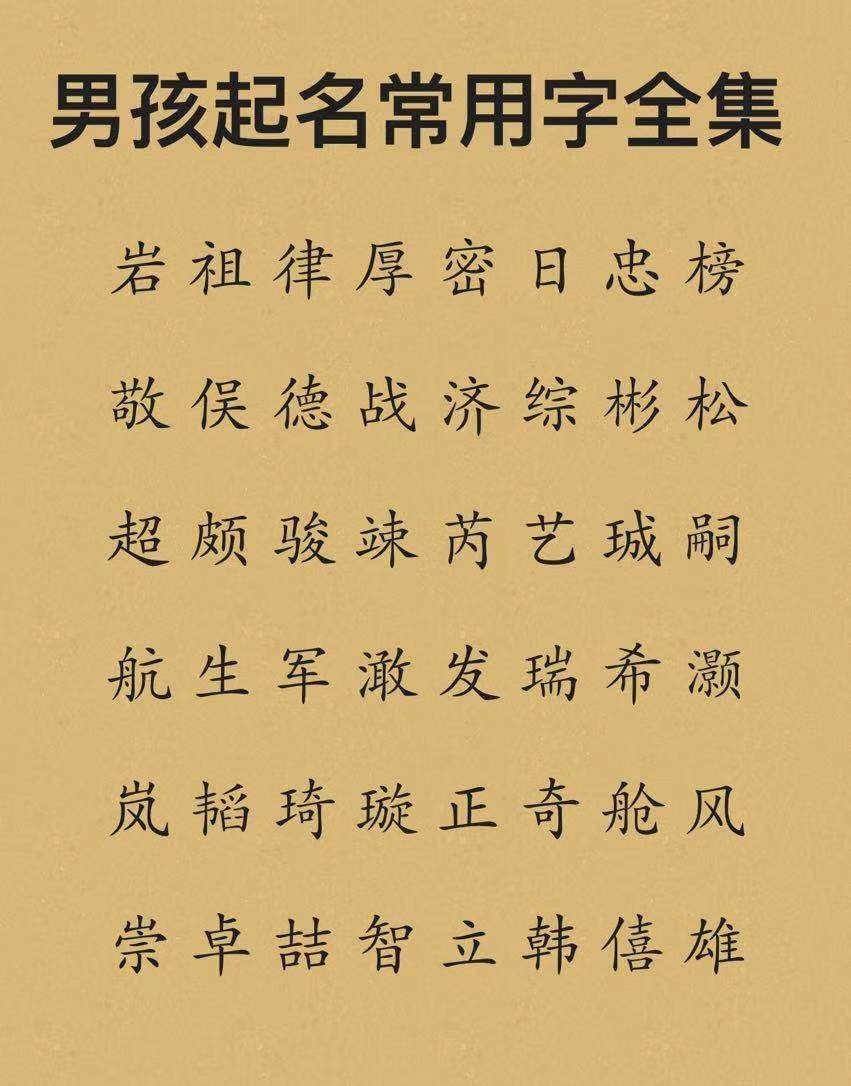 男孩起名常用字全集
岩祖律厚密日忠榜
敬俣德战济综彬松
超颇骏竦芮艺珹嗣
航生军潡发瑞希灏
岚韬琦璇正奇舱风
崇卓喆智立韩僖雄